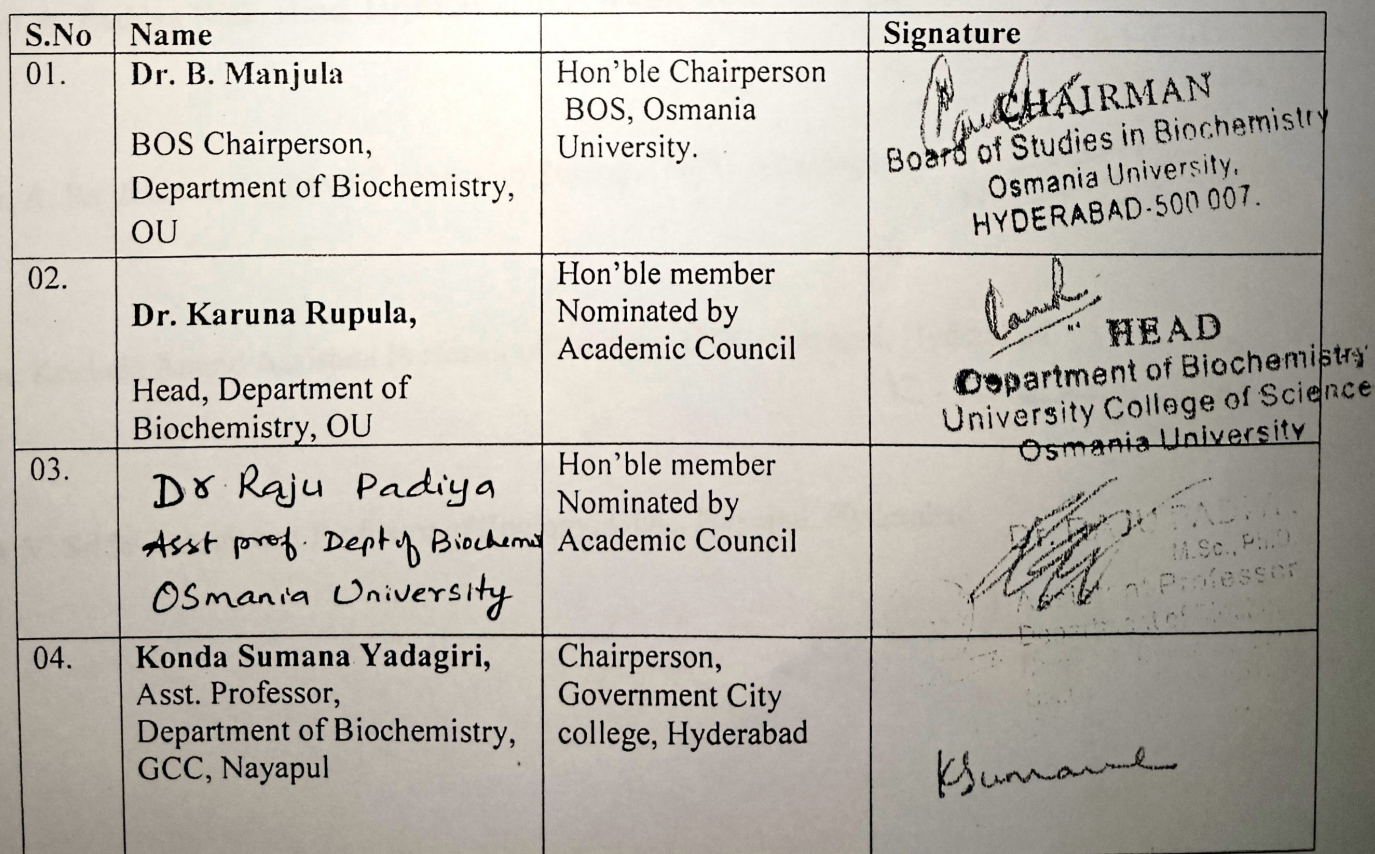 S.No Name Signature
01. Dr. B. Manjula
BOS Chairperson,
Department of Biochemistry,
OU
Hon'ble Chairperson
BOS, Osmania
University.
CHAIRMAN
Board of Studies in Biochemistry
Osmania University,
HYDERABAD-500 007.
02.
Dr. Karuna Rupula,
Head, Department of
Biochemistry, OU
Hon'ble member
Nominated by
Academic Council
HEAD
Department of Biochemistry
University College of Science
Osmania University
03.
Dr Raju Padiya
Asst prof. Dept of Biochemis
Osmania University
Hon'ble member
Nominated by
Academic Council
M.Sc., Ph.D
Professor
04. Konda Sumana Yadagiri,
Asst. Professor,
Department of Biochemistry,
GCC, Nayapul
Chairperson,
Government City
college, Hyderabad
KSumana